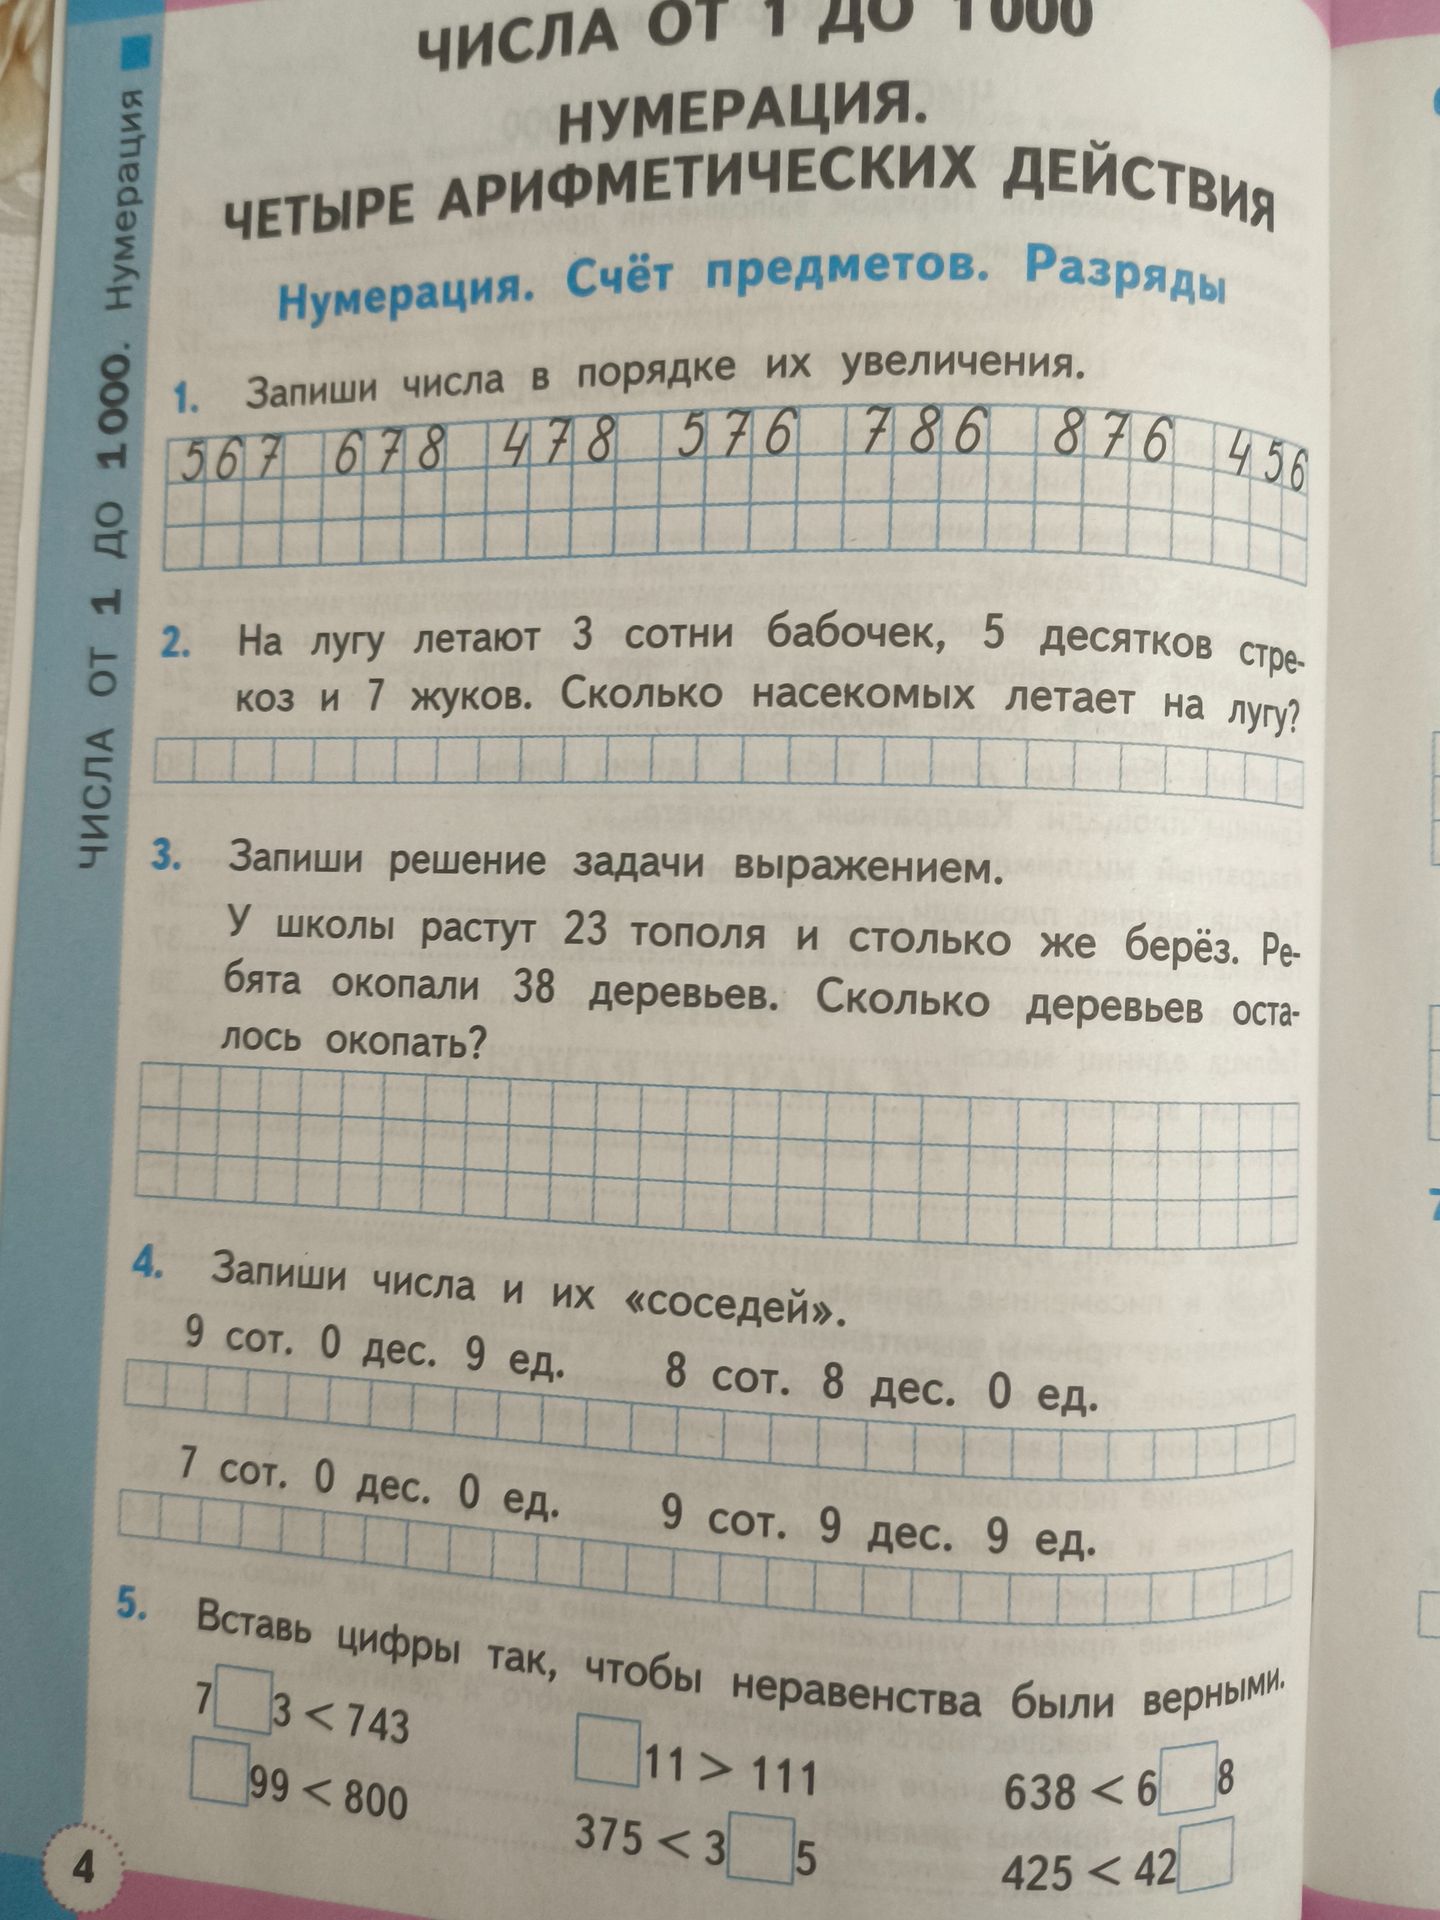 ЧИСЛА ОТ 1 ДО 1000
НУМЕРАЦИЯ.
ЧЕТЫРЕ АРИФМЕТИЧЕСКИХ ДЕЙСТВИЯ
Нумерация. Счёт предметов. Разряды
1. Запиши числа в порядке их увеличения.
567 678 478 576 786 876 456
2. На лугу летают 3 сотни бабочек, 5 десятков стре-
коз и 7 жуков. Сколько насекомых летает на лугу?
3. Запиши решение задачи выражением.
У школы растут 23 тополя и столько же берёз. Ре-
бята окопали 38 деревьев. Сколько деревьев оста-
лось окопать?
4. Запиши числа и их «соседей».
9 сот. 0 дес. 9 ед. 8 сот. 8 дес. 0 ед.
7 сот. 0 дес. 0 ед. 9 сот. 9 дес. 9 ед.
5. Вставь цифры так, чтобы неравенства были верными.
7 3 < 743 11 > 111 638 < 6 8
99 < 800 375 < 3 5 425 < 42
4
ЧИСЛА ОТ 1 ДО 1000. Нумерация